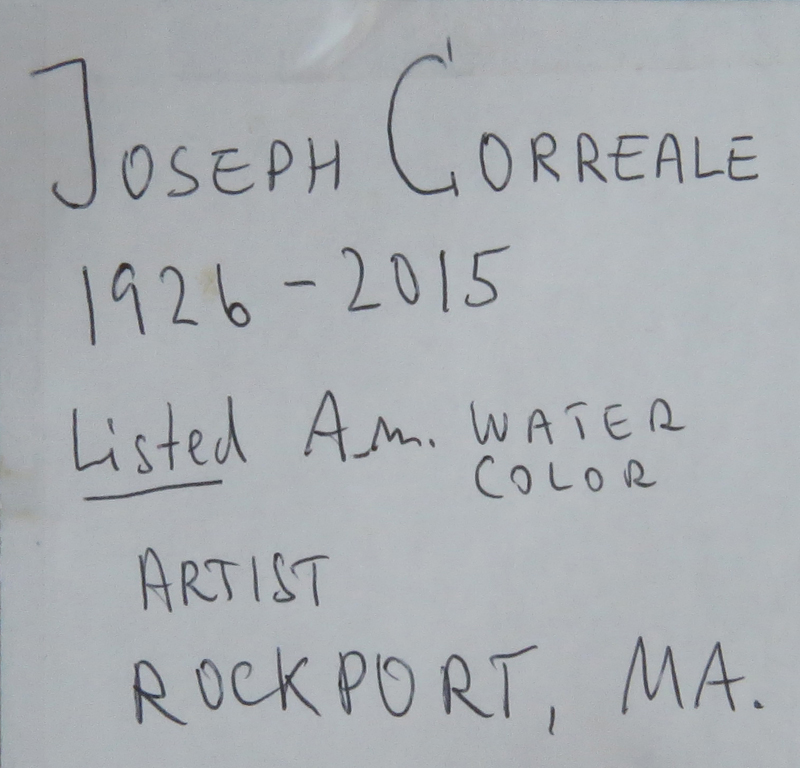 JOSEPH CORREALE
1926-2015
Listed Am. WATER
COLOR
ARTIST
ROCKPORT, MA.